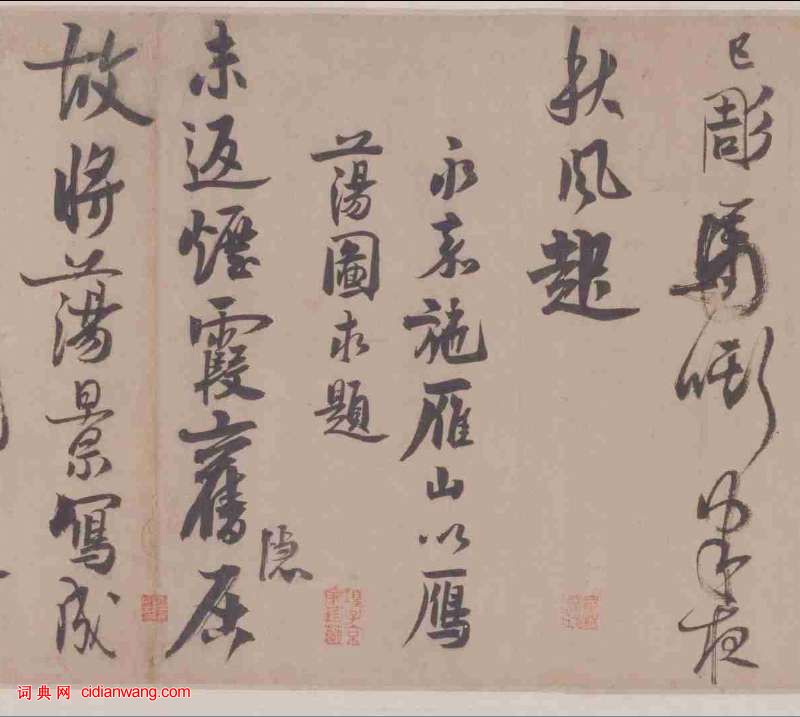 已彫馬嘶夜
秋風起
永嘉施雁山以鴈
蕩圖求題
未返煙霞舊居
隐
故將蕩景寫成
词典网 cidianwang.com